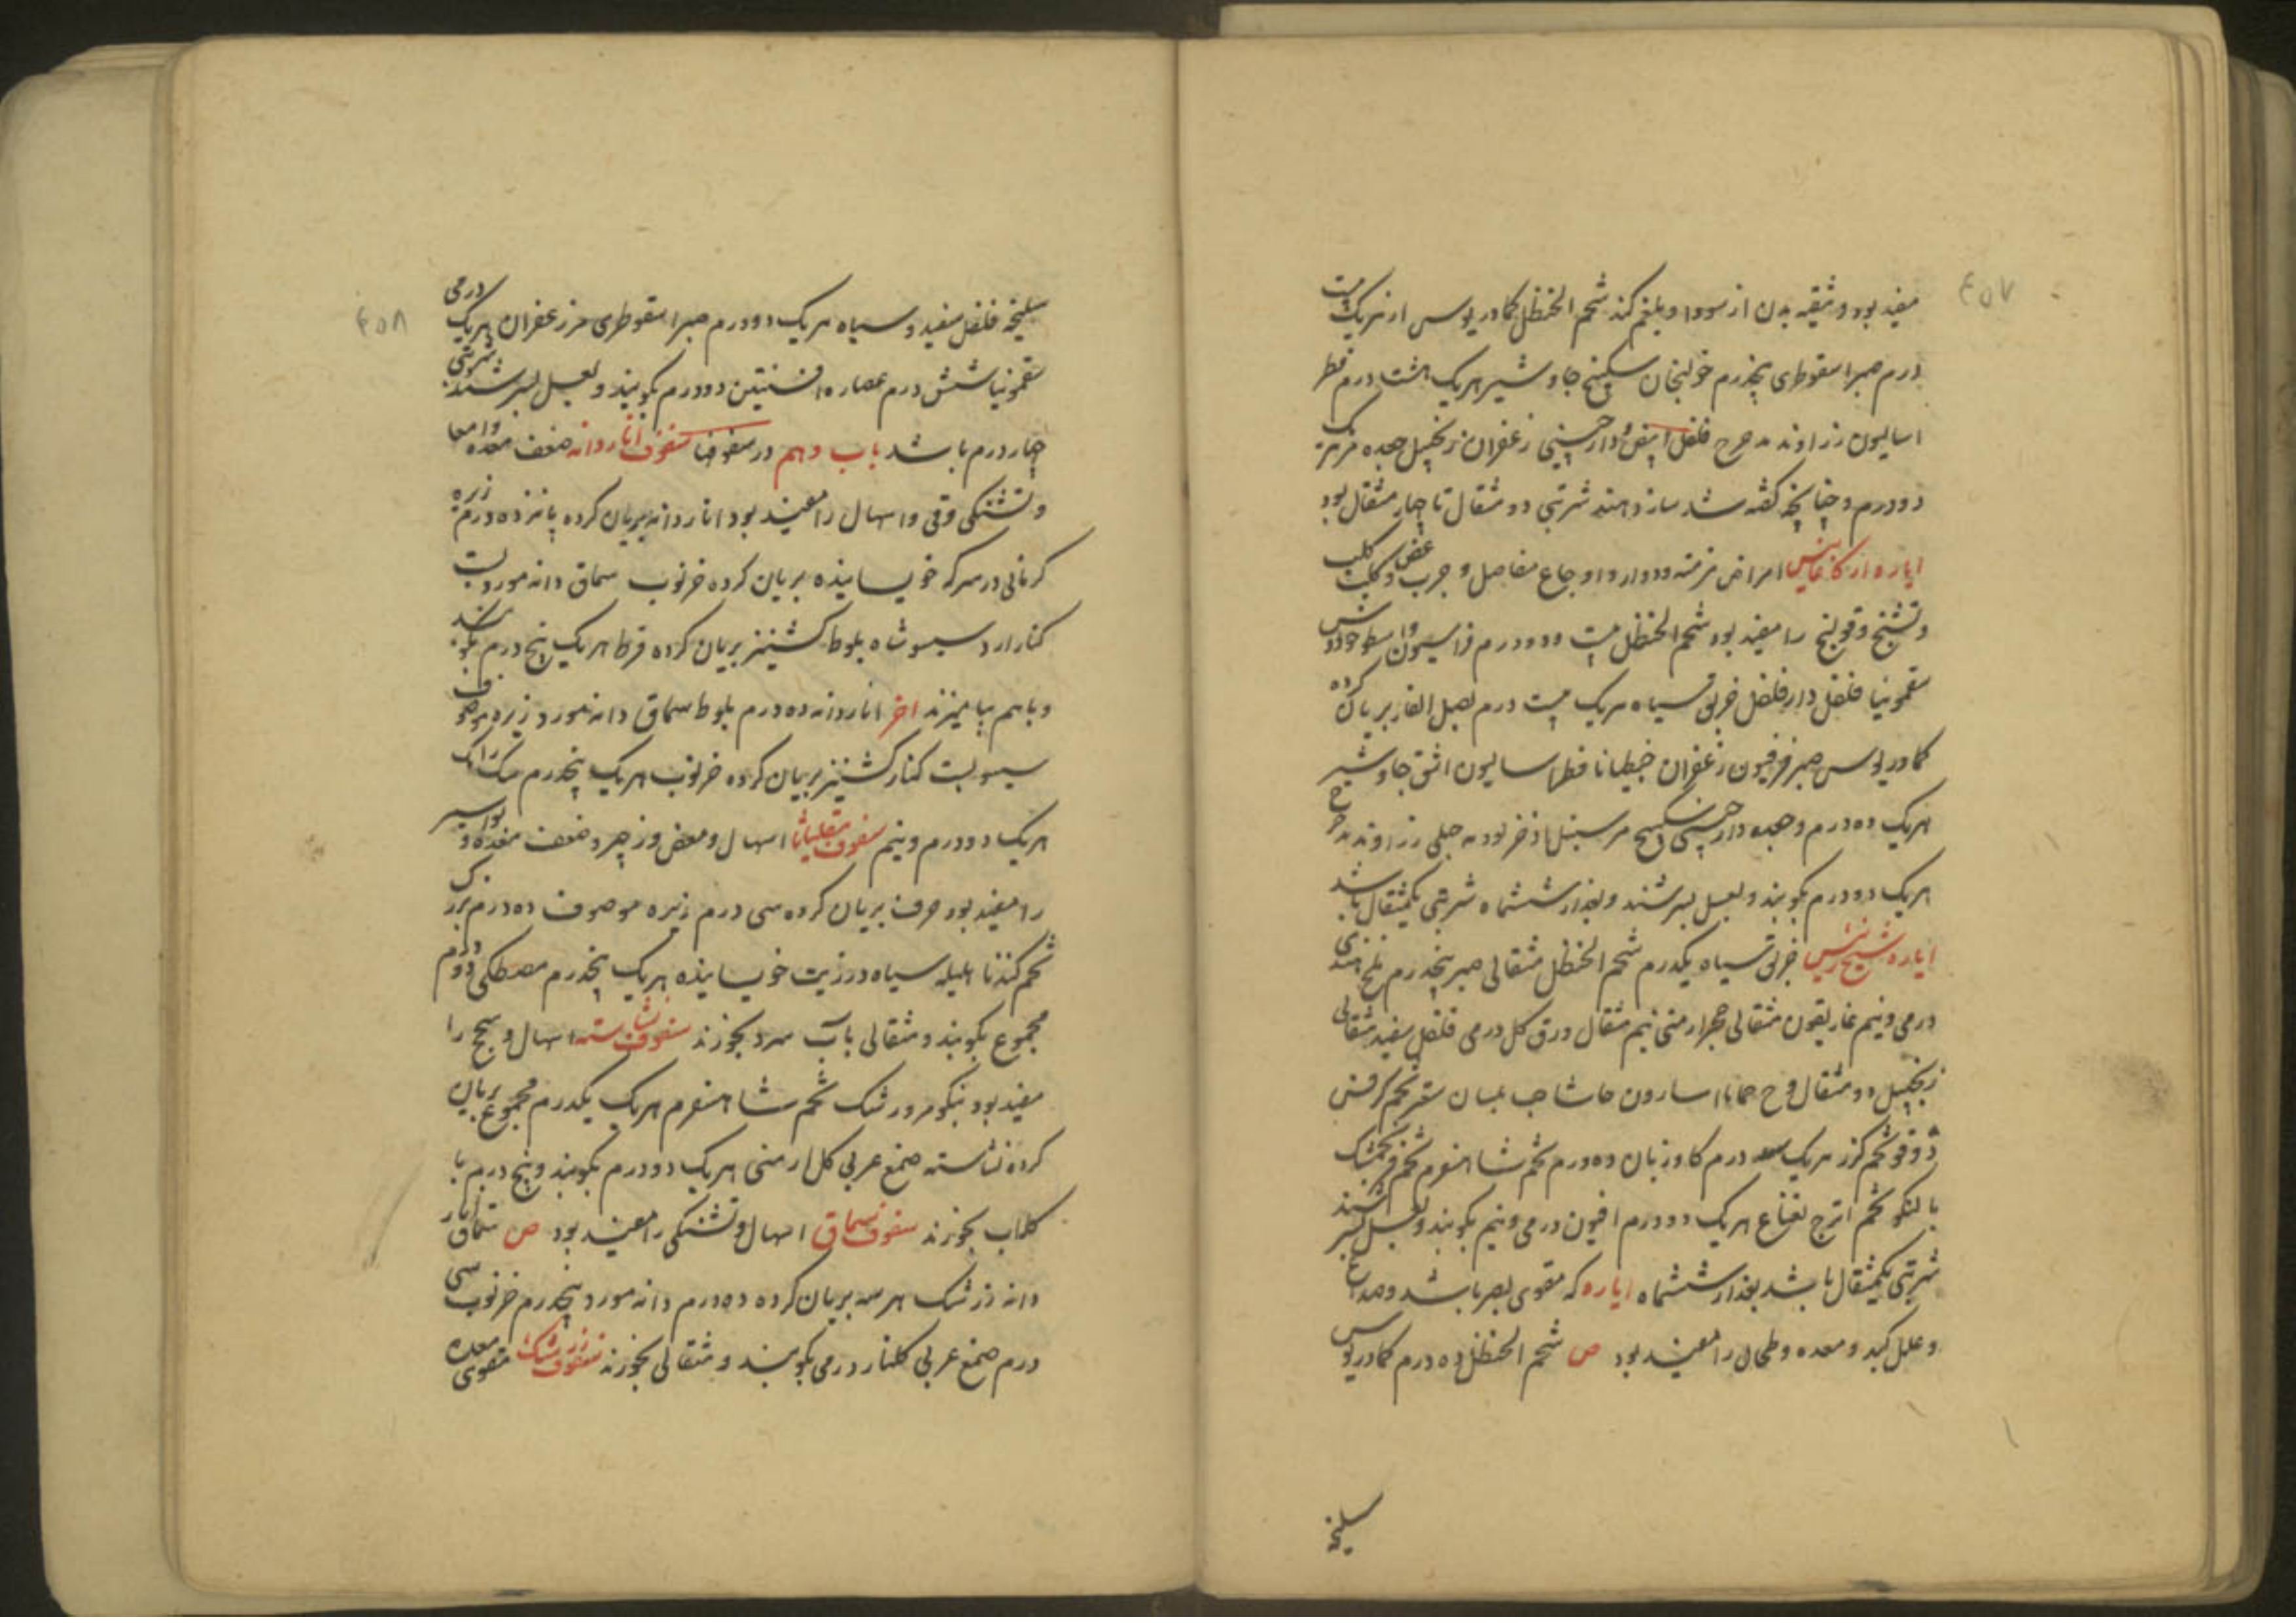 ٤٥٧
مفید بود و تنقیه بدن از سودا و بلغم کند شحم الحنظل کمادریوس از هریک بیست
درم صبر اسقوطری پنجدرم خولنجان سکبینج جاوشیر هریک هشت درم فطر
اسالیون زراوند مدحرج فلفل ابیض و دارچینی زعفران زنجبیل جعده مر هریک
دو درم و چنانچه گفته شد سازند شربتی دو مثقال تا چهار مثقال بود
ایاره ارکاغانیس امراض مزمنه و دوار و اوجاع مفاصل و جرب و کلب
و تشنج و قولنج را مفید بود شحم الحنظل بیست و دو درم فراسیون و اسطوخودوس
سقمونیا فلفل دارفلفل خربق سیاه هریک بیست درم بصل الفار بریان کرده
کمادریوس صبر فرفیون زعفران جنطیانا فطراسالیون اشق جاوشیر
هریک ده درم و جعده دارچینی سکبینج مر سنبل اذخر پودنه جبلی زراوند مدحرج
هریک دو درم بکوبند و بعسل بسرشند و بعد از ششماه شربتی یکمثقال باشد
ایاره شیخ رئیس خربق سیاه یکدرم شحم الحنظل مثقالی صبر پنجدرم نمک هندی
درمی و نیم غاریقون مثقالی حجر ارمنی نیم مثقال ورق گل درمی فلفل سفید مثقالی
زنجبیل دو مثقال وج حماما اسارون حاشا حب بلسان تخم کرفس
دوقو تخم گزر هریک درم کاوزبان ده درم تخم شاهسفرم تخم فرنجمشک
بالنکو تخم اترج نعناع هریک دو درم افیون درمی و نیم بکوبند و بعسل بسرشند
شربتی یکمثقال باشد بعد از ششماه ایاره که مقوی بصر باشد و صداع
و علل کبد و معده و طحال را مفید بود ص شحم الحنظل ده درم کمادریوس
سلیخه
٤٥٨
سلیخه فلفل سفید و سیاه هریک دو درم صبر اسقوطری مر زعفران هریک درمی
سقمونیا شش درم عصاره افسنتین دو درم بکوبند و بعسل بسرشند شربتی
چهار درم باشد باب دهم در سفوفها سفوف اناردانه ضعف معده و امعا
و تشنکی و قی و اسهال را مفید بود اناردانه بریان کرده پانزده درم زیره
کرمانی در سرکه خیسانیده بریان کرده خرنوب سماق دانه مورد
کنار ارد شاه بلوط کشنیز بریان کرده قرط هریک پنج درم بکوبند
و باهم بیامیزند اخر اناردانه ده درم بلوط سماق دانه مورد زیره موصوف
کنار کشنیز بریان کرده خرنوب هریک پنجدرم سک رامک
هریک دو درم و نیم سفوف مقلیاثا اسهال و مغص و زحیر و ضعف معده و بواسیر
را مفید بود حرف بریان کرده سی درم زیره موصوف ده درم بزرک
تخم کندنا هلیله سیاه در زیت خیسانیده هریک پنجدرم مصطکی دو درم
مجموع بکوبند و مثقالی بآب سرد بخورند سفوف نشاسته اسهال و سحج را
مفید بود بنکو مرو زرشک تخم شاهسفرم هریک یکدرم مجموع بریان
کرده نشاسته صمغ عربی گل ارمنی هریک دو درم بکوبند و پنج درم با
کلاب بخورند سفوف سماق اسهال و تشنکی را مفید بود ص سماق انار
دانه زرشک هر سه بریان کرده ده درم دانه مورد پنجدرم خرنوب سی
درم صمغ عربی کلنار درمی بکوبند و مثقالی بخورند سفوف زرشک مقوی معده